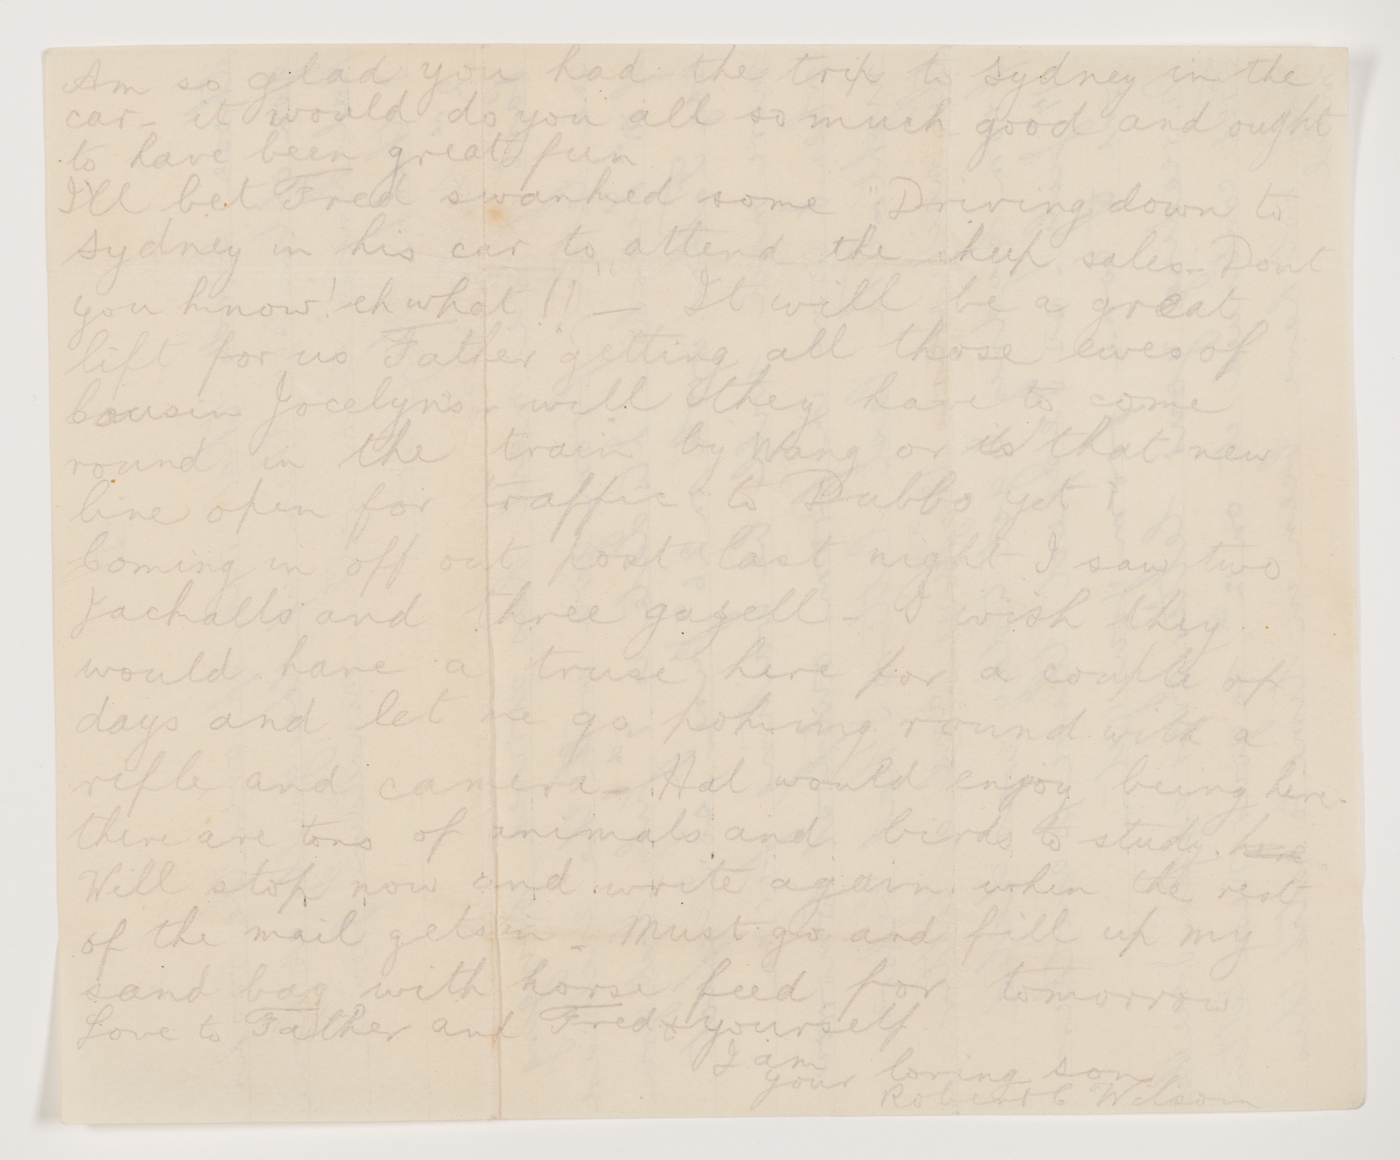 Am so glad you had the trip to Sydney in the
car - it would do you all so much good and ought
to have been great fun
I'll bet Fred swanked some "Driving down to
Sydney in his car to attend the sheep sales - Dont
you know! eh what!! — It will be a great
lift for us Father getting all those ewes of
Cousin Jocelyn's - will they have to come
round in the train by Wang or is that new
line open for traffic to Dubbo yet?
Coming in off out post last night I saw two
Jackalls and three gazell - I wish they
would have a truse here for a couple of
days and let me go poking round with a
rifle and camera - Hal would enjoy being here -
there are tons of animals and birds to study.
Will stop now and write again when the rest
of the mail gets in - Must go and fill up my
sand bag with horse feed for tomorrow
Love to Father and Fred & yourself
I am
your loving son
Robert C Wilson